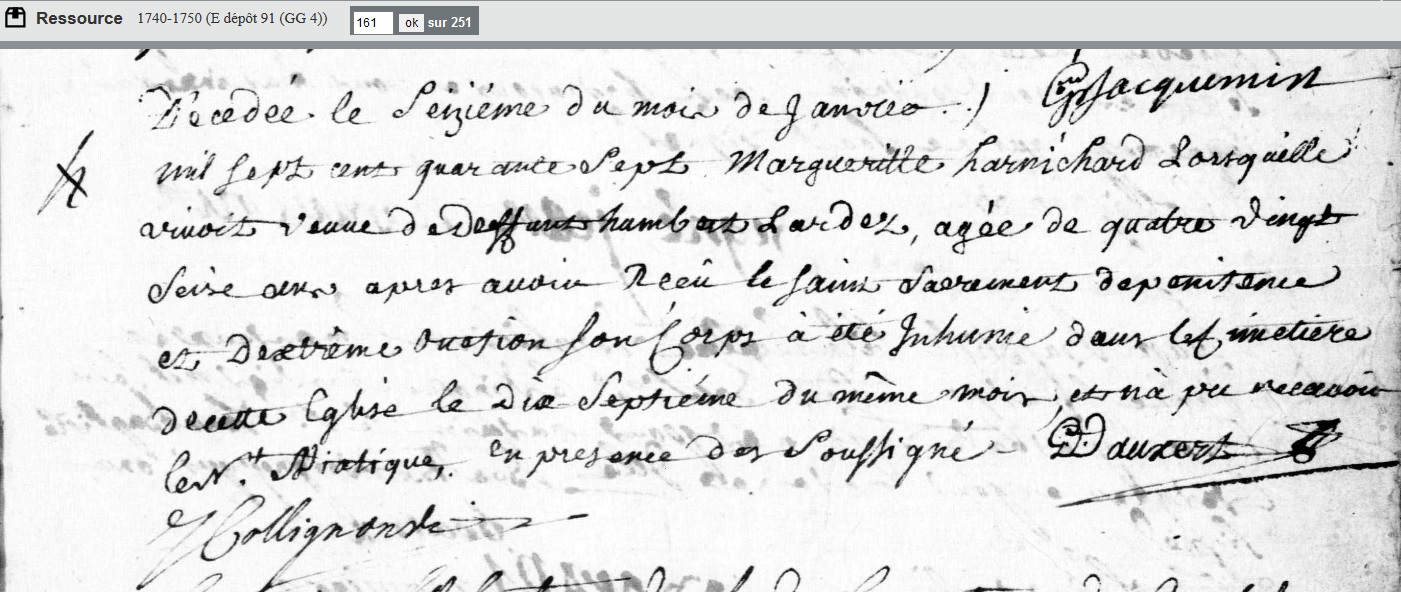 Ressource 1740-1750 (E dépôt 91 (GG 4)) 161 ok sur 251
Décédée le Seiziéme du mois de Janvier Jacquemin
mil sept cent quarante sept Margueritte harnichard Lorsquelle
vivoit veuve de Deffunt hambert Lardez, agée de quatre vingt
Seise ans apres avoir Receû le saint Sacrement depenitence
et Dextrême onction son Corps à été Inhumé dans le Cimetiere
decette Eglise le Dix Septiéme du même mois, et nà pu recevoir
le St Viatique, En presence des Soussigné Dauxert
Collignon